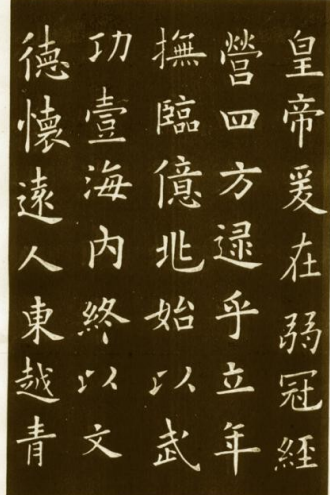 皇帝爰在弱冠經
營四方逯乎立年
撫臨億兆始以武
功壹海内終以文
德懷遠人東越青